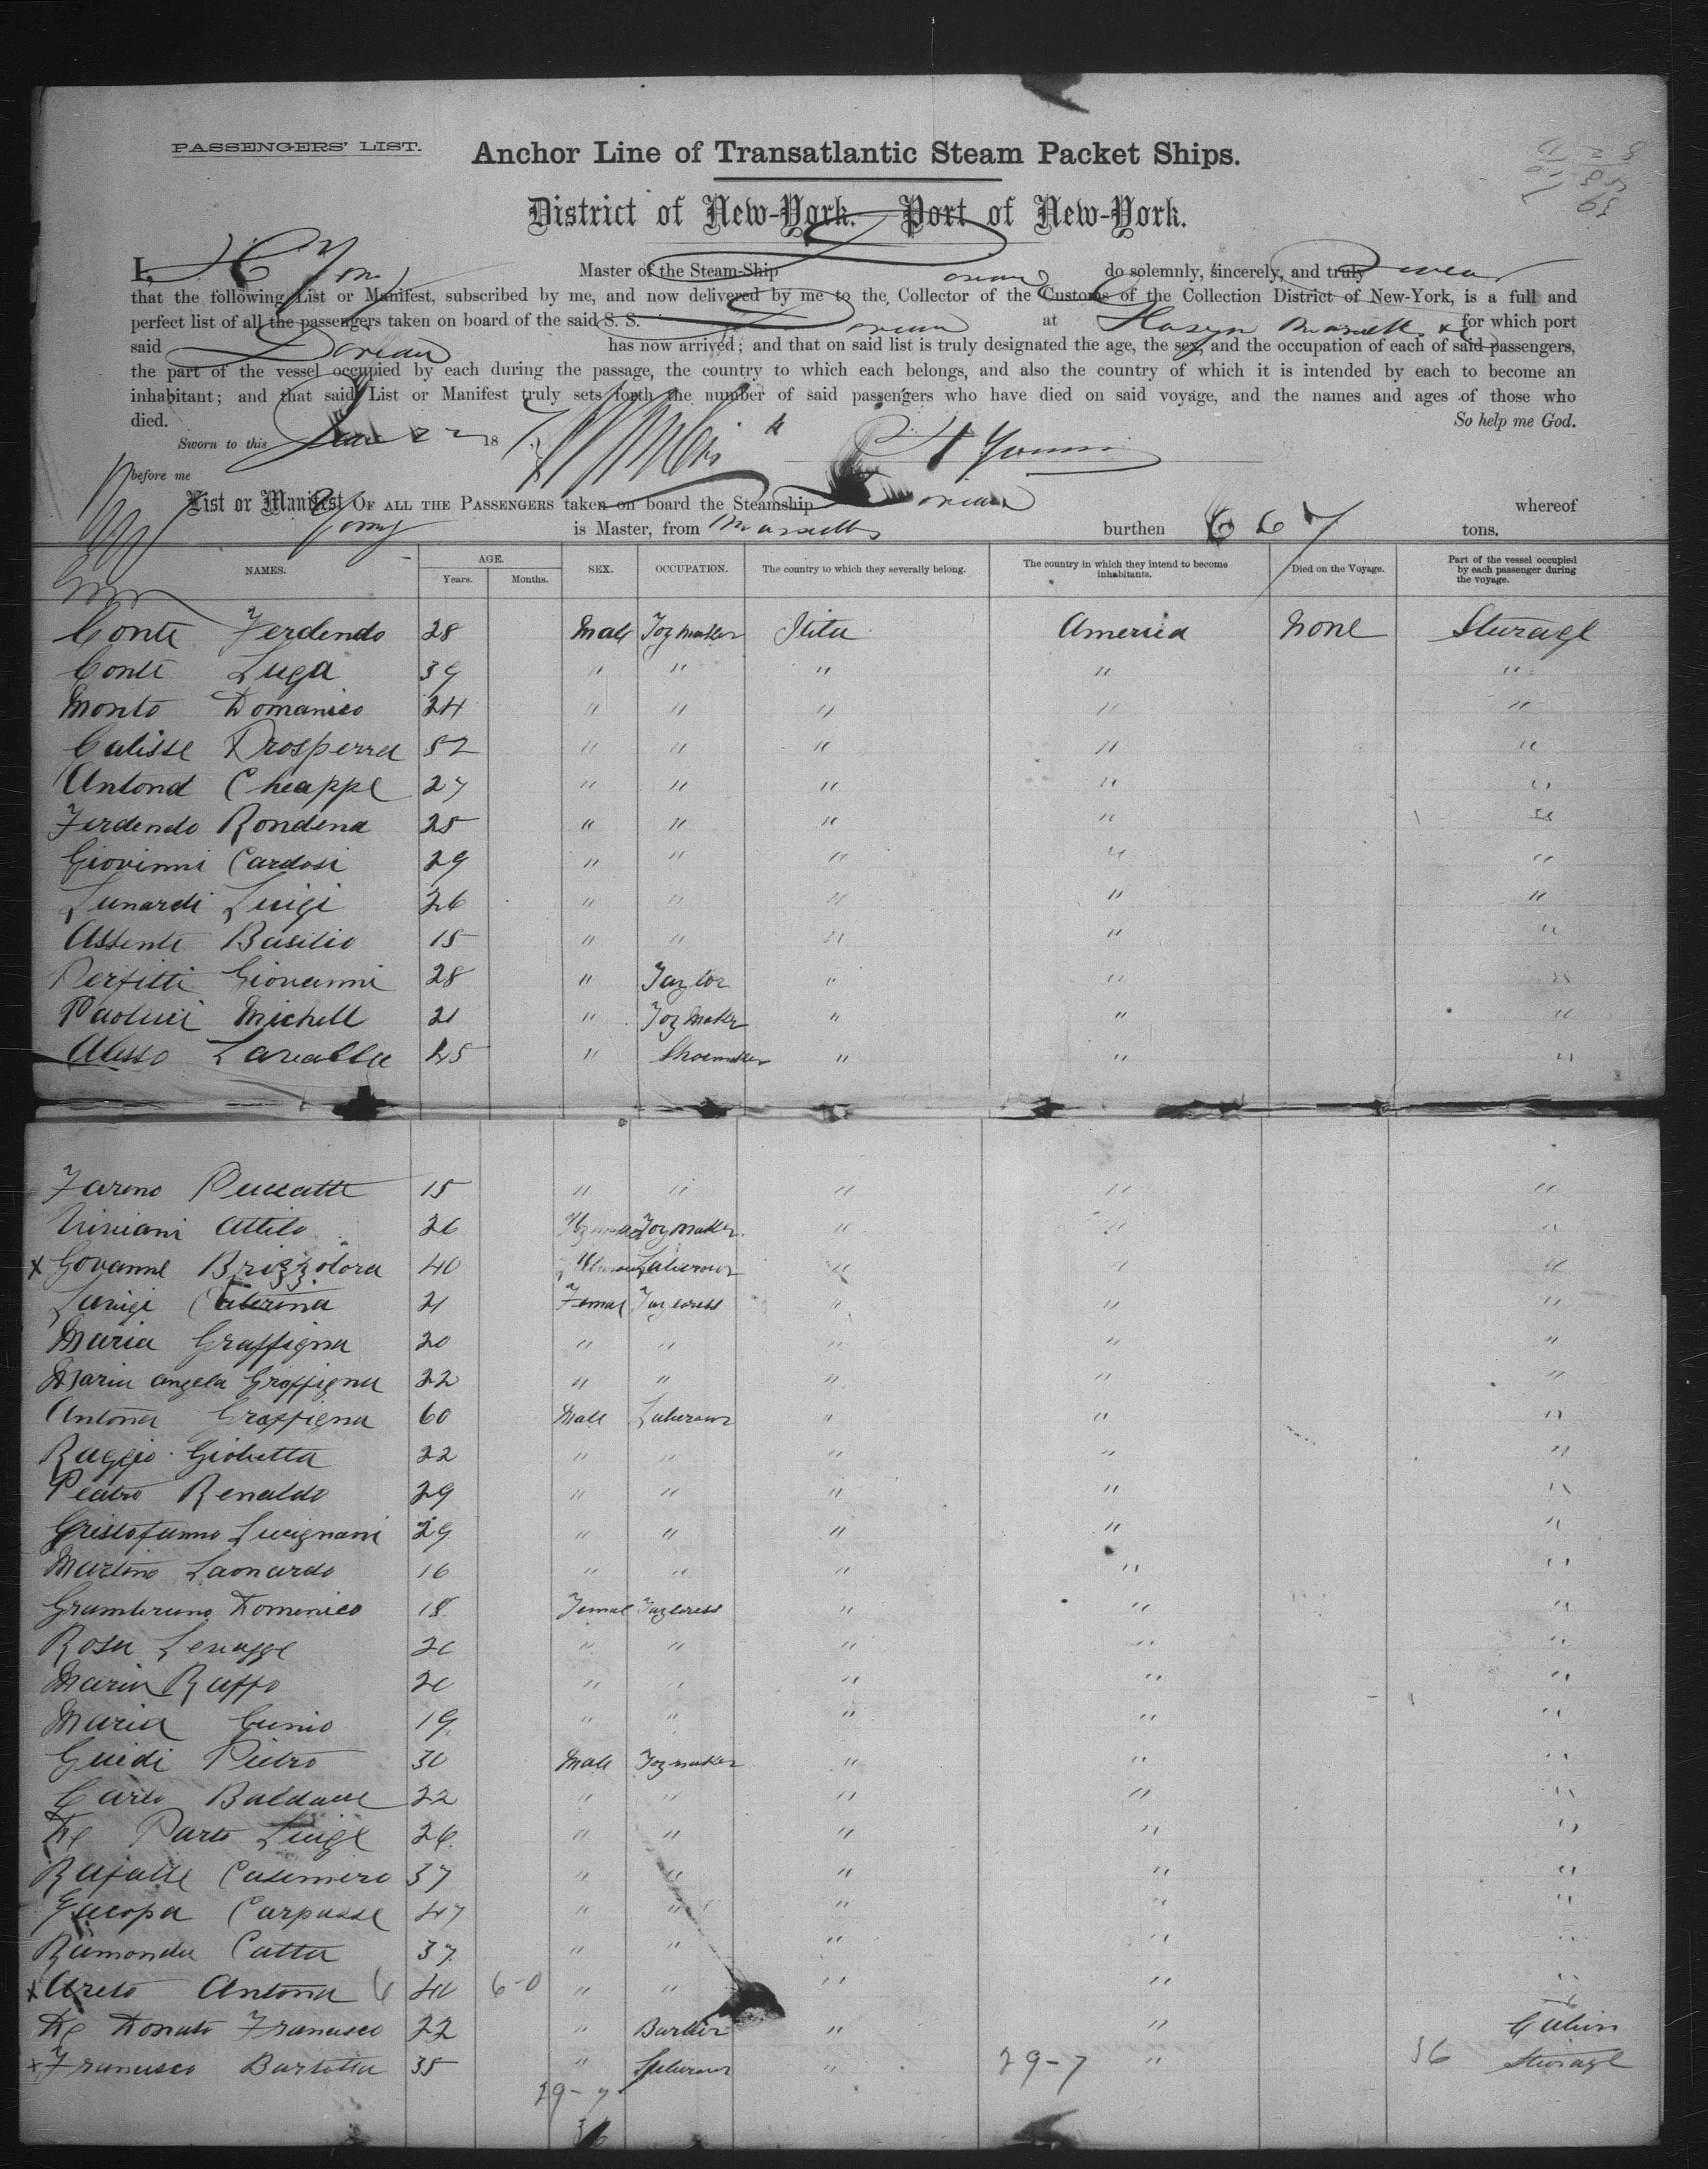 PASSENGERS' LIST.
Anchor Line of Transatlantic Steam Packet Ships.
District of New-York. Port of New-York.
I, Young Master of the Steam-Ship Dorian do solemnly, sincerely, and truly Swear
that the following List or Manifest, subscribed by me, and now delivered by me to the Collector of the Customs of the Collection District of New-York, is a full and
perfect list of all the passengers taken on board of the said S. S. Dorian at for which port
said Dorian has now arrived; and that on said list is truly designated the age, the sex, and the occupation of each of said passengers,
the part of the vessel occupied by each during the passage, the country to which each belongs, and also the country of which it is intended by each to become an
inhabitant; and that said List or Manifest truly sets forth the number of said passengers who have died on said voyage, and the names and ages of those who
died. So help me God.
Sworn to this June 22 187 Young
before me
List or Manifest OF ALL THE PASSENGERS taken on board the Steamship Dorian whereof
Young is Master, from Marseilles burthen 667 tons.
NAMES. AGE. Years. Months. SEX. OCCUPATION. The country to which they severally belong. The country in which they intend to become inhabitants. Died on the Voyage. Part of the vessel occupied by each passenger during the voyage.
Conte Ferdendo 28 Male Toymaker Itila America None Sturage
Conte Luga 39 " " " " "
Monto Domanico 24 " " " " "
Calisse Prosperra 52 " " " " "
Antond Cheappe 27 " " " " "
Ferdendo Rondena 25 " " " " "
Giovinni Cardosi 29 " " " " "
Lunardi Luigi 26 " " " " "
Assente Basilio 15 " " " " "
Perfitti Giovanni 28 " Taylor " " "
Paolucci Michell 21 " Toymaker " " "
Alesso 25 " Shoemaker " " "
Farino Puccatte 15 " " " " "
Viviani Attilo 26 Toymaker " " "
x Govanne Brizzolora 40 Laberour " " "
Luuigi Caterina 21 Femal Tayloress " " "
Maria Graffigna 20 " " " " "
Maria angela Groffigna 22 " " " " "
Antona Graffigna 60 Male Laberour " " "
Raggio Giobatta 22 " " " " "
Peatro Renaldo 29 " " " " "
Gristofanno Lucignani 29 " " " " "
Martino Laonardo 16 " " " " "
Grambruno Domenico 18 Femal Tayloress " " "
Rosa 20 " " " " "
Maria Raffo 20 " " " " "
Maria Cunio 19 " " " " "
Guidi Pietro 30 Male Toymaker " " "
Carlo Baldacce 22 " " " " "
De Parto Luige 26 " " " " "
Rafalle Casemiero 37 " " " " "
Gacopa Carpasse 47 " " " " "
Ramonda Catta 37 " " " " "
x Areto Antona 40 6-0 " " " " "
De Donato Francisco 22 " Barber " " Cabin
x Francisco Bartotta 35 " Laberour " 29-7 " 36 Sturage
29-7
36